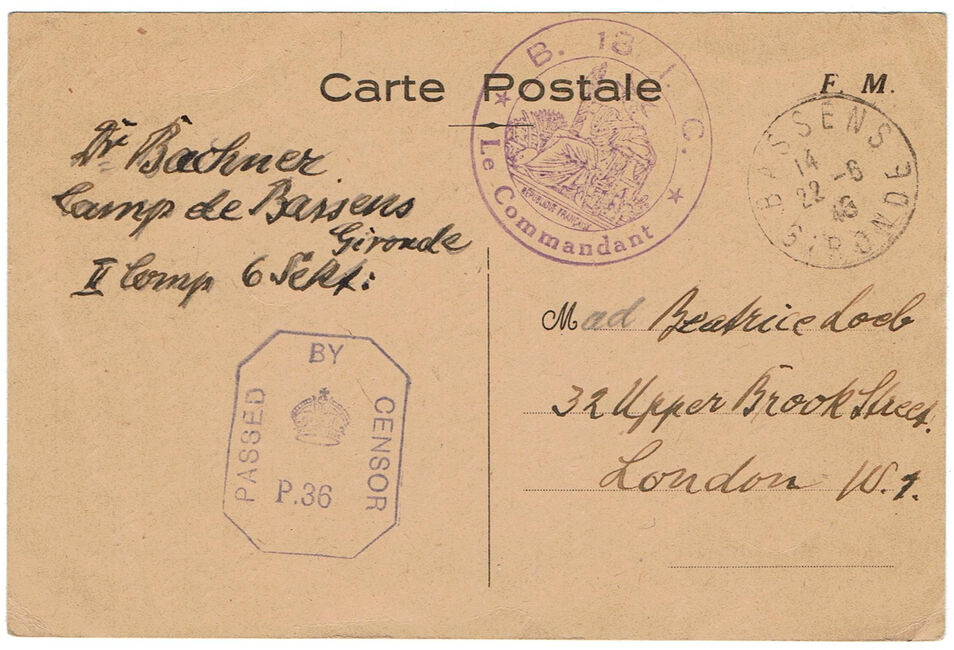 Carte Postale
F. M.
B. 18 I. C.
Le Commandant
RÉPUBLIQUE FRANÇAISE
BASSENS
14 -6
22
GIRONDE
Dr Bachner
Camp de Bassens
Gironde
II Comp 6 Sekt:
PASSED
BY
CENSOR
P.36
Mad Beatrice Loeb
32 Upper Brook Street.
London W. 1.